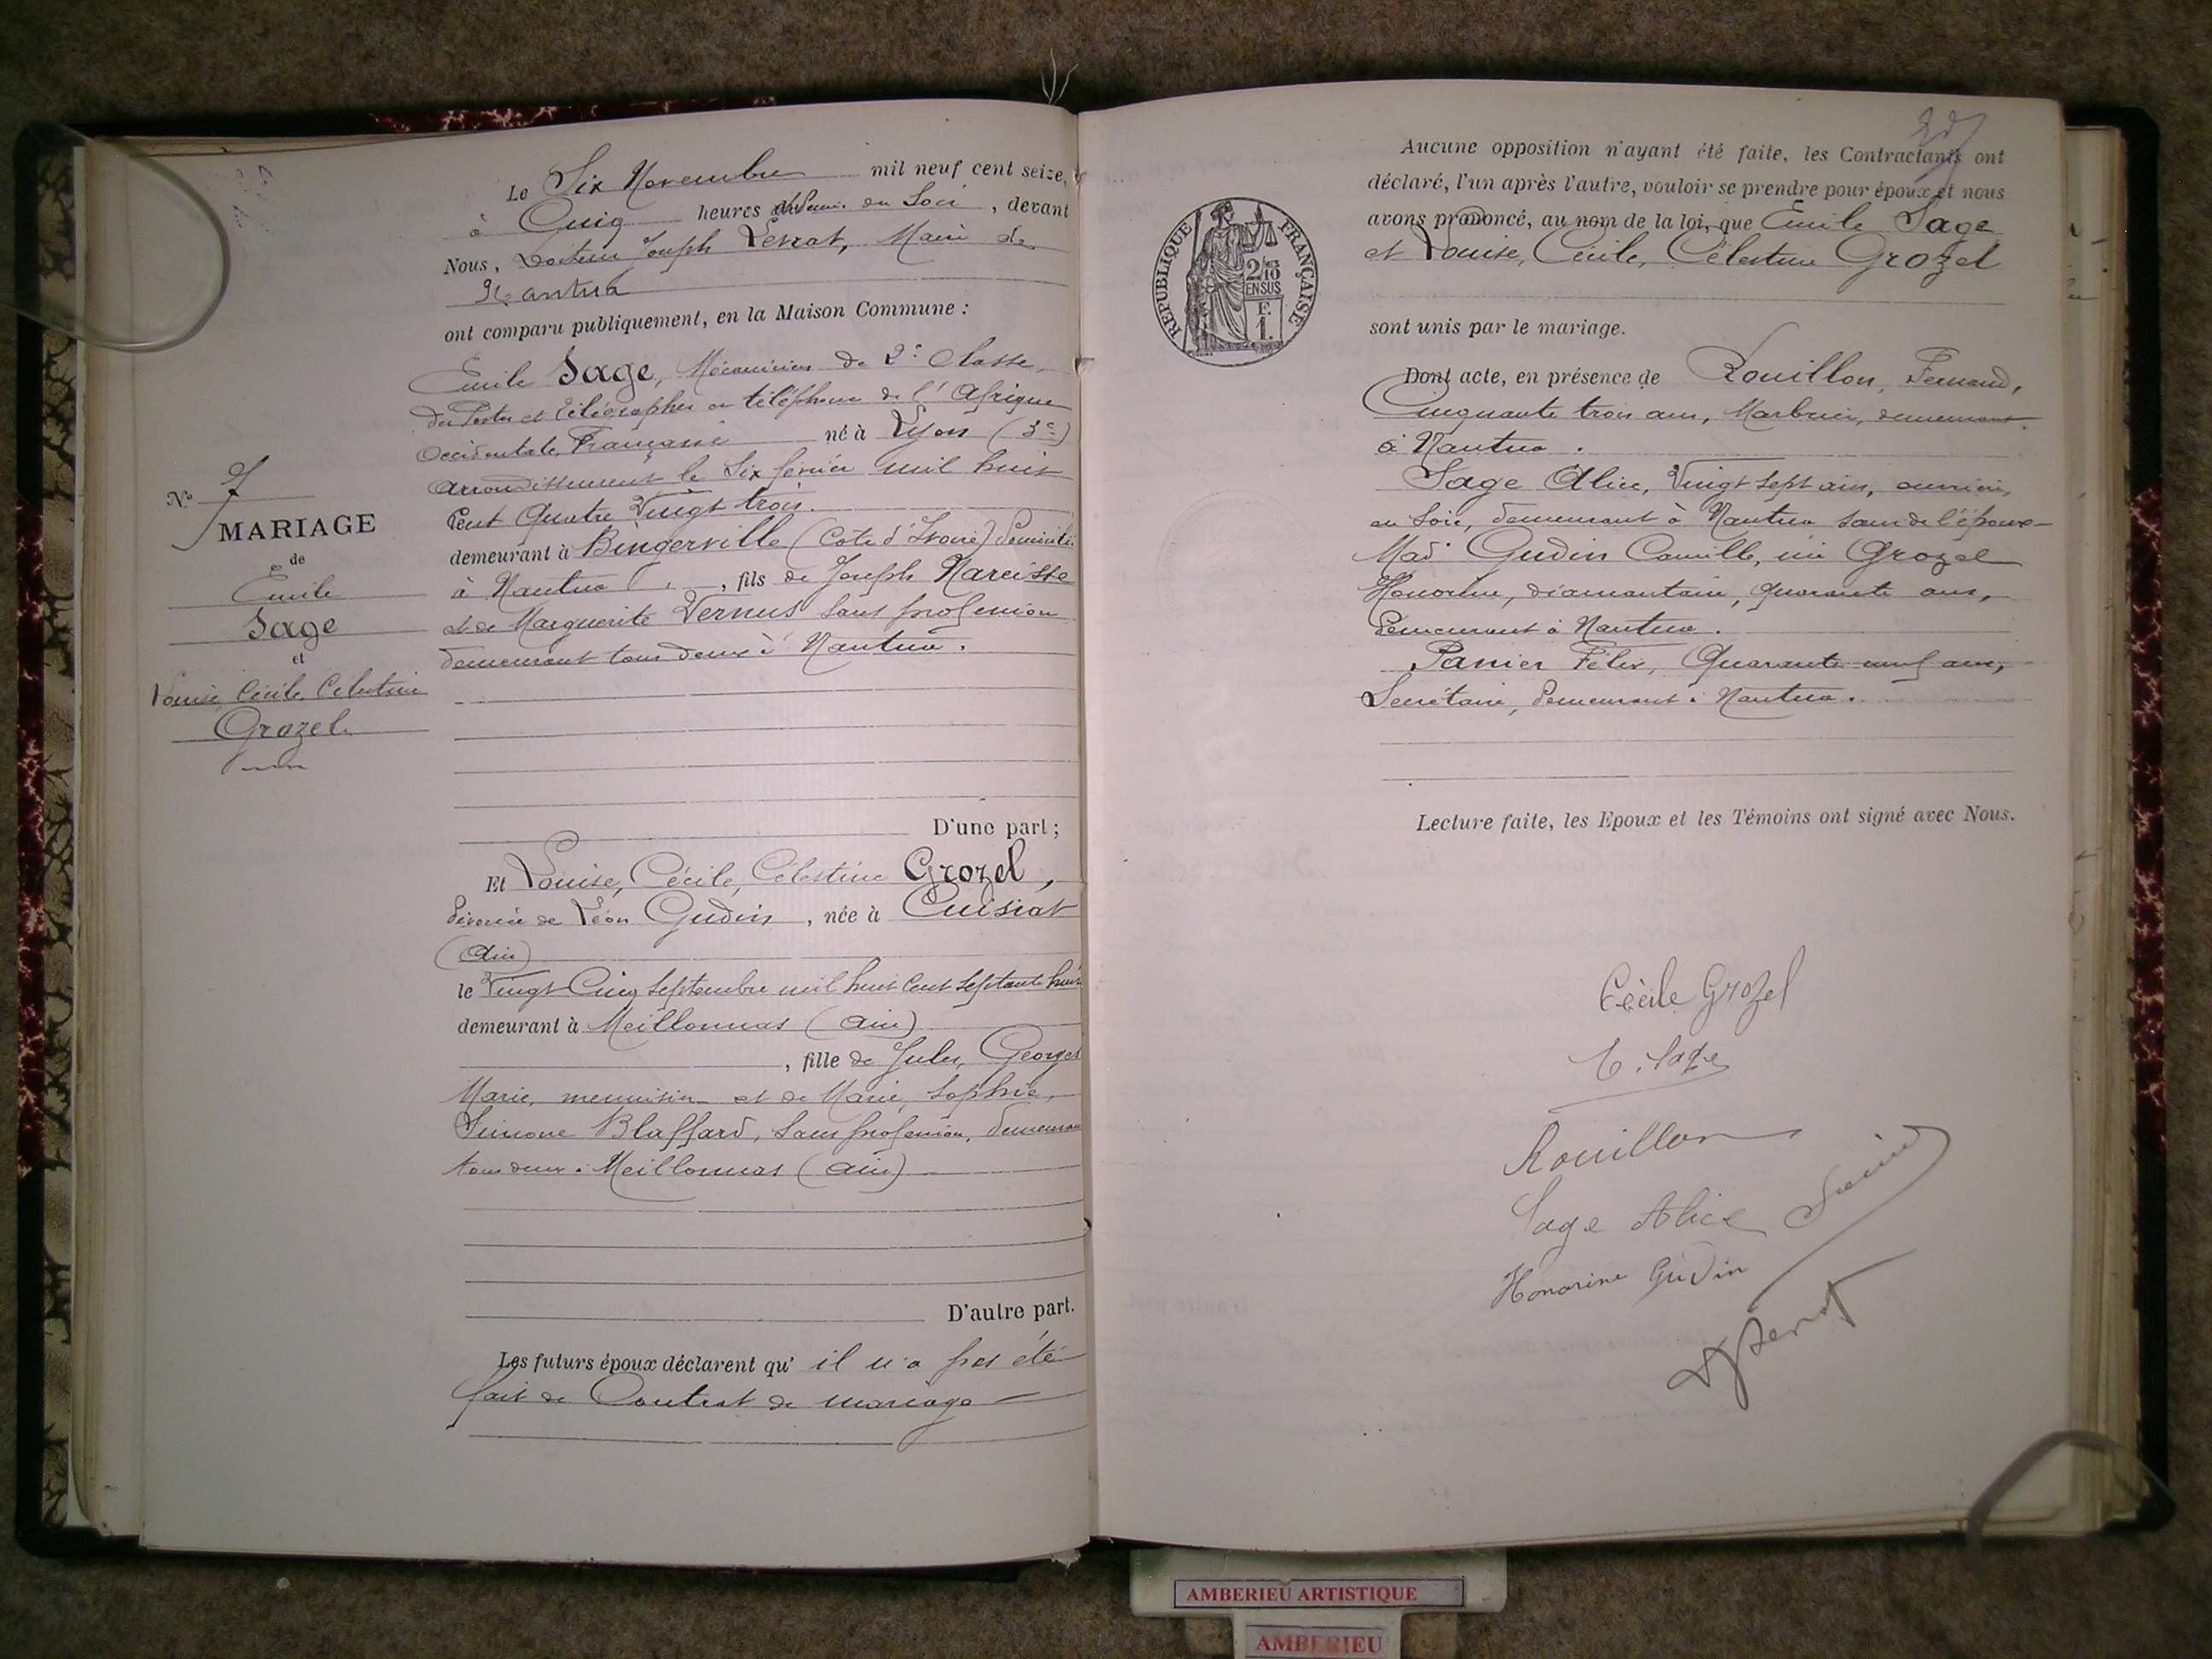 Le Six Novembre mil neuf cent seize,
à Cinq heures du Soir, devant
Nous, Docteur Joseph Levrat, Maire de
Nantua
ont comparu publiquement, en la Maison Commune :
Emile Sage, Mécanicien de 2e Classe,
des Postes et Télégraphes et téléphones de l'Afrique
Occidentale Française né à Lyon (3e)
arrondissement le Six février mil huit
Cent Quatre Vingt trois.
demeurant à Bingerville (Côte d'Ivoire)
à Nantua, fils de Joseph Narcisse
et de Marguerite Vernus sans profession
demeurant tous deux à Nantua.
No 7
MARIAGE
de
Emile
Sage
et
Louise, Cécile Célestine
Grozel.
D'une part ;
Et Louise, Cécile, Célestine Grozel,
divorcée de Léon Gudin, née à Cuisiat
(Ain)
le Vingt Cinq Septembre mil huit Cent Septante huit
demeurant à Meillonnas (Ain)
, fille de Jules, Georges
Marie, menuisier et de Marie, Sophie,
Simone Blaffard, sans profession, demeurant
tous deux à Meillonnas (Ain)
D'autre part.
Les futurs époux déclarent qu' il n'a pas été
fait de Contrat de mariage
Aucune opposition n'ayant été faite, les Contractants ont
déclaré, l'un après l'autre, vouloir se prendre pour époux et nous
avons prononcé, au nom de la loi, que Emile Sage
et Louise, Cécile, Célestine Grozel
sont unis par le mariage.
RÉPUBLIQUE FRANÇAISE
2/10 EN SUS
F. 1.
Dont acte, en présence de Rouillon, Fernand,
Cinquante trois ans, Marbrier, demeurant
à Nantua.
Sage Alice, Vingt sept ans, ouvrière
en Soie, demeurant à Nantua sœur de l'époux
Made Gudin Camille, née Grozel
Honorine, diamantaire, quarante ans,
demeurant à Nantua.
Panier Félix, Quarante neuf ans,
Secrétaire, demeurant à Nantua.
Lecture faite, les Epoux et les Témoins ont signé avec Nous.
Cécile Grozel
E. Sage
Rouillon
Sage Alice
Honorine Gudin
AMBERIEU ARTISTIQUE
AMBERIEU